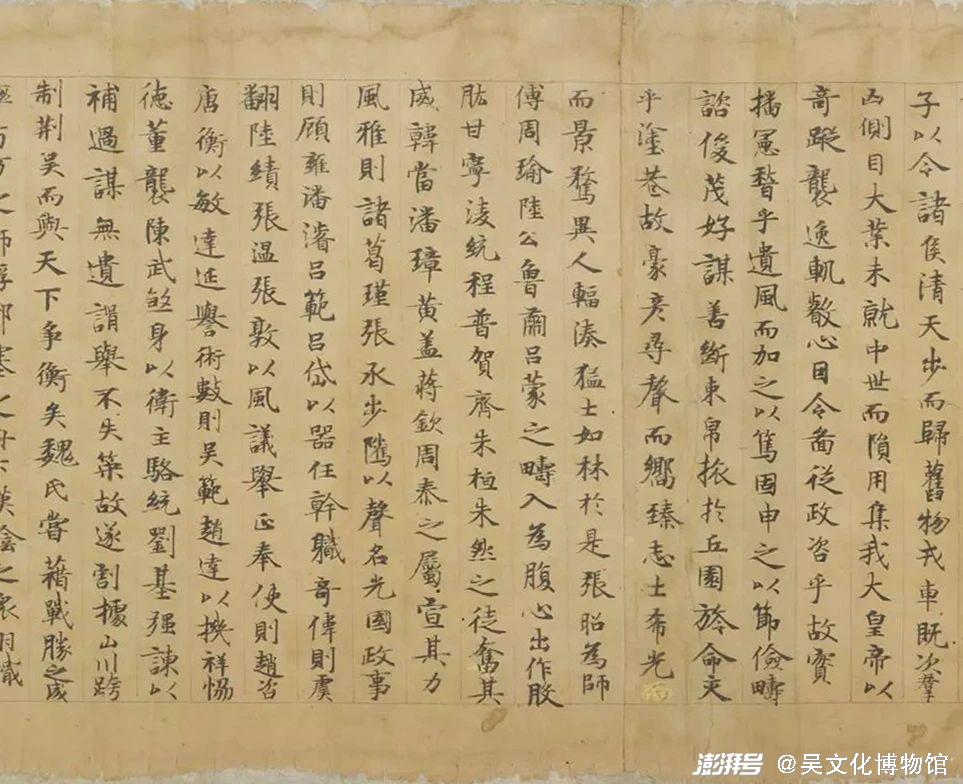 子以令諸侯清天步而歸舊物戎車既次羣
凶側目大業未就中世而隕用集我大皇帝以
奇蹤襲逸軌叡心因令啚從政咨乎故實
播憲稽乎遺風而加之以篤固申之以節儉疇
諮俊茂好謀善斷束帛旅於丘園旍命交
乎塗巷故豪彦尋聲而嚮臻志士希光而
而景騖異人輻湊猛士如林於是張昭為師
傅周瑜陸公魯肅吕蒙之疇入為腹心出作股
肱甘寧淩統程普賀齊朱桓朱然之徒奮其
威韓當潘璋黄盖蔣欽周泰之屬宣其力
風雅則諸葛瑾張承步隲以聲名光國政事
則顧雍潘濬吕範吕岱以器任幹職奇偉則虞
翻陸績張温張敦以風議舉正奉使則趙咨
唐衡以敏達延譽術數則吴範趙達以機祥恊
德董襲陳武煞身以衛主駱統劉基强諫以
補過謀無遺諝舉不失策故遂割據山川跨
制荆吴而與天下争衡矣魏氏嘗藉戰勝之威
之師浮鄧塞之舟下漢陰之衆羽
澎湃号 @吴文化博物馆